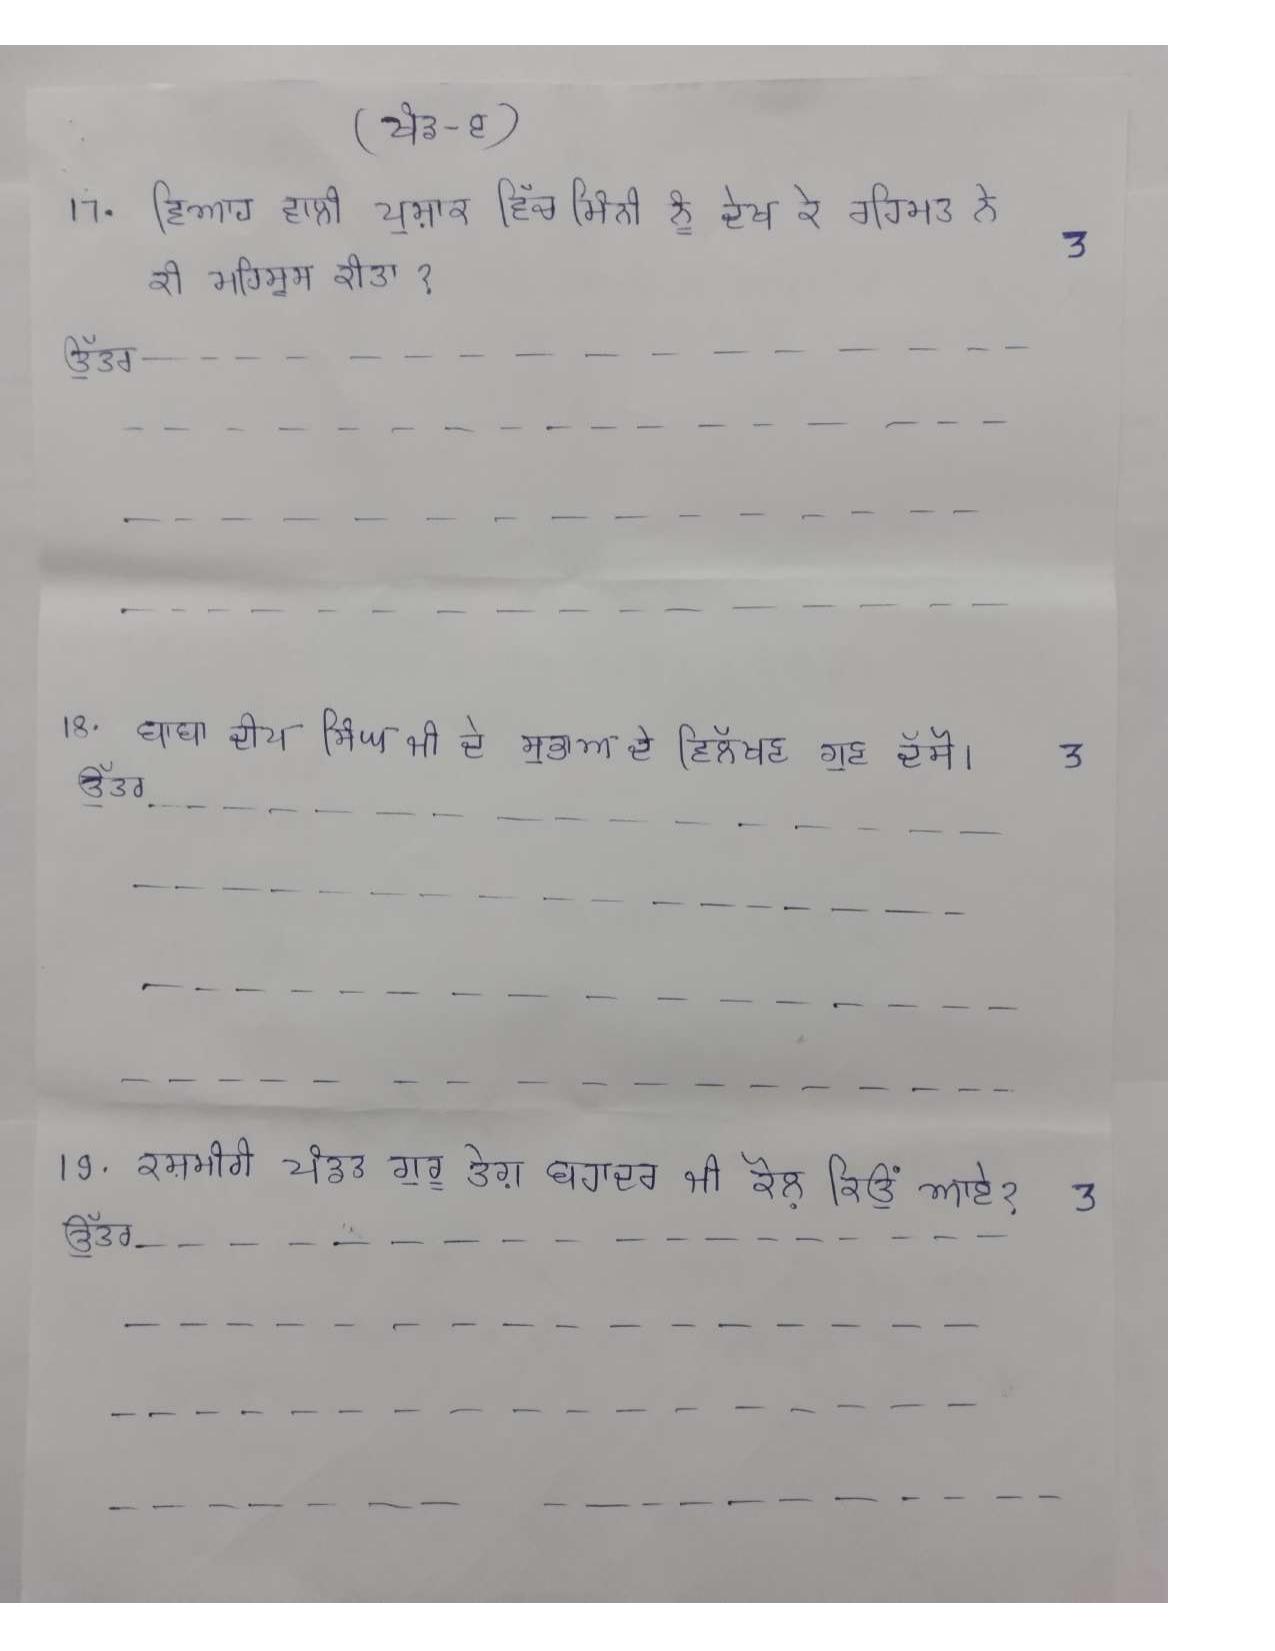 (ਖੰਡ-ੲ)
17. ਵਿਆਹ ਵਾਲੀ ਪੁਸ਼ਾਕ ਵਿੱਚ ਮਿੰਨੀ ਨੂੰ ਦੇਖ ਕੇ ਰਹਿਮਤ ਨੇ
3
ਕੀ ਮਹਿਸੂਸ ਕੀਤਾ ?
ਉੱਤਰ
18. ਬਾਬਾ ਦੀਪ ਸਿੰਘ ਜੀ ਦੇ ਸੁਭਾਅ ਦੇ ਵਿਲੱਖਣ ਗੁਣ ਦੱਸੋ। 3
ਉੱਤਰ
19. ਕਸ਼ਮੀਰੀ ਪੰਡਤ ਗੁਰੂ ਤੇਗ਼ ਬਹਾਦਰ ਜੀ ਕੋਲ਼ ਕਿਉਂ ਆਏ? 3
ਉੱਤਰ